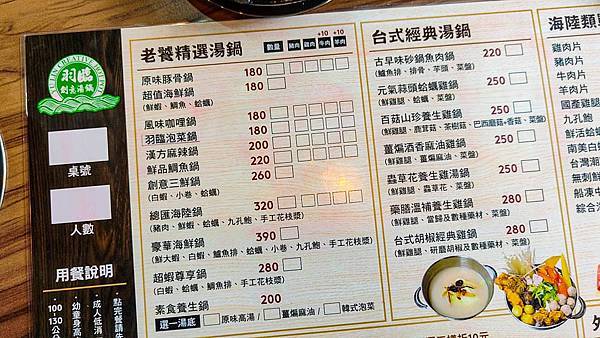 羽臨
創意湯鍋
桌號
人數
用餐說明
老饕精選湯鍋
數量 豬肉 雞肉 +10 牛肉 +10 羊肉
原味豚骨鍋 180
超值海鮮鍋 180
(鮮蝦、鯛魚、蛤蠣)
風味咖哩鍋 180
羽臨泡菜鍋 180
漢方麻辣鍋 200
鮮品鯛魚鍋 220
創意三鮮鍋 260
(白蝦、小卷、蛤蠣)
總匯海陸鍋 320
(豬肉、鮮蝦、蛤蠣、九孔鮑、手工花枝漿)
豪華海鮮鍋 390
(鮮大蝦、白蝦、鱸魚排、蛤蠣、小卷、九孔鮑、手工花枝漿)
超蝦尊享鍋 280
(白蝦、蛤蠣、鯛魚排、手工花枝漿)
素食養生鍋 200
選一湯底 原味高湯/ 薑煸麻油/ 韓式泡菜
台式經典湯鍋
古早味砂鍋魚肉鍋 220
(鱸魚排、排骨、芋頭、菜盤)
元氣蒜頭蛤蠣雞鍋 250
(鮮雞腿、蛤蠣、菜盤)
百菇山珍養生雞鍋 250
(鮮雞腿、鹿茸菇、茶樹菇、巴西蘑菇、香菇、菜盤)
薑煸酒香麻油雞鍋 250
(鮮雞腿、薑煸麻油、菜盤)
蟲草花養生雞湯鍋 250
(鮮雞腿、蟲草花、菜盤)
藥膳溫補養生雞鍋 280
(鮮雞腿、當歸及數種藥材、菜盤)
台式胡椒經典雞鍋 280
(鮮雞腿、研磨胡椒及數種藥材、菜盤)
海陸類
雞肉片
豬肉片
牛肉片
羊肉片
國產雞
九孔鮑
鮮活蛤蠣
南美白
台灣
無刺
船凍
綜合